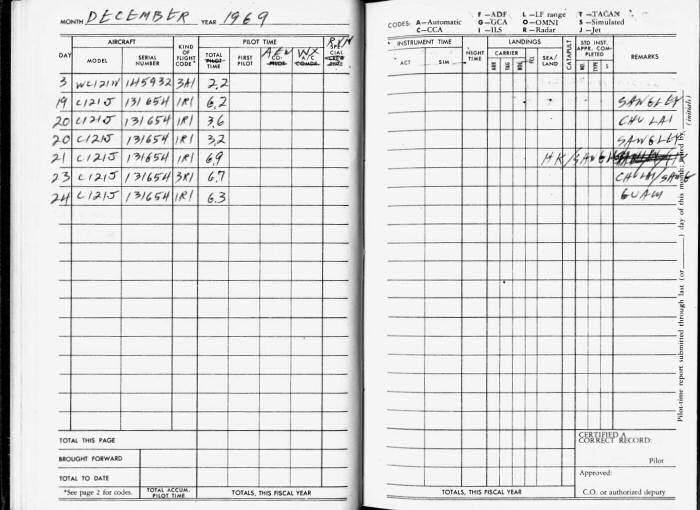 MONTH DECEMBER YEAR 1969
AIRCRAFT KIND OF FLIGHT CODE* PILOT TIME
DAY MODEL SERIAL NUMBER TOTAL PILOT TIME FIRST PILOT CO- A/C SPECIAL
AEW WX RVN
3 WC121N 145932 3A1 2.2
19 C121J 131654 1R1 6.2
20 C121J 131654 1R1 3.6
20 C121J 131654 1R1 3.2
21 C121J 131654 1R1 6.9
23 C121J 131654 3R1 6.7
24 C121J 131654 1R1 6.3
TOTAL THIS PAGE
BROUGHT FORWARD
TOTAL TO DATE
*See page 2 for codes. TOTAL ACCUM. PILOT TIME TOTALS, THIS FISCAL YEAR
CODES: A—Automatic F—ADF L—LF range T—TACAN
C—CCA G—GCA O—OMNI S—Simulated
I—ILS R—Radar J—Jet
INSTRUMENT TIME NIGHT TIME LANDINGS CATAPULT STD INST. APPR. COMPLETED REMARKS
ACT SIM CARRIER SEA/LAND
ARR T&G BOL FCL NO. TYPE S
SANGLEY
CHU LAI
SANGLEY
HK/SANGLEY
GUAM
Pilot-time report submitted through last (or ) day of this month; signed by (initials)
CERTIFIED A CORRECT RECORD:
Pilot
Approved:
TOTALS, THIS FISCAL YEAR C.O. or authorized deputy